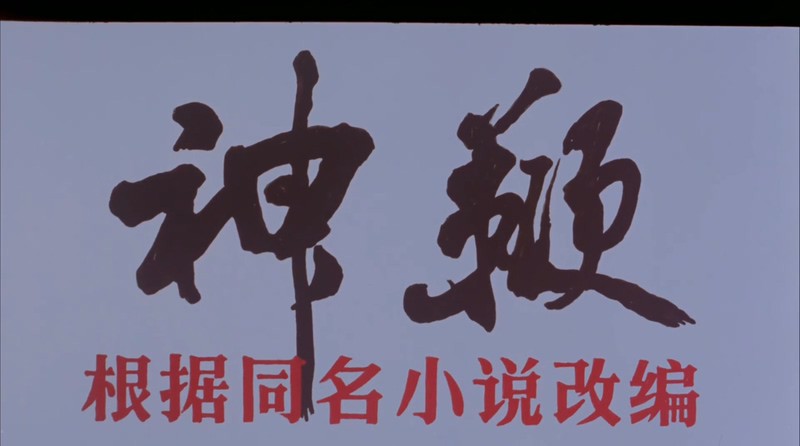 神鞭
根据同名小说改编